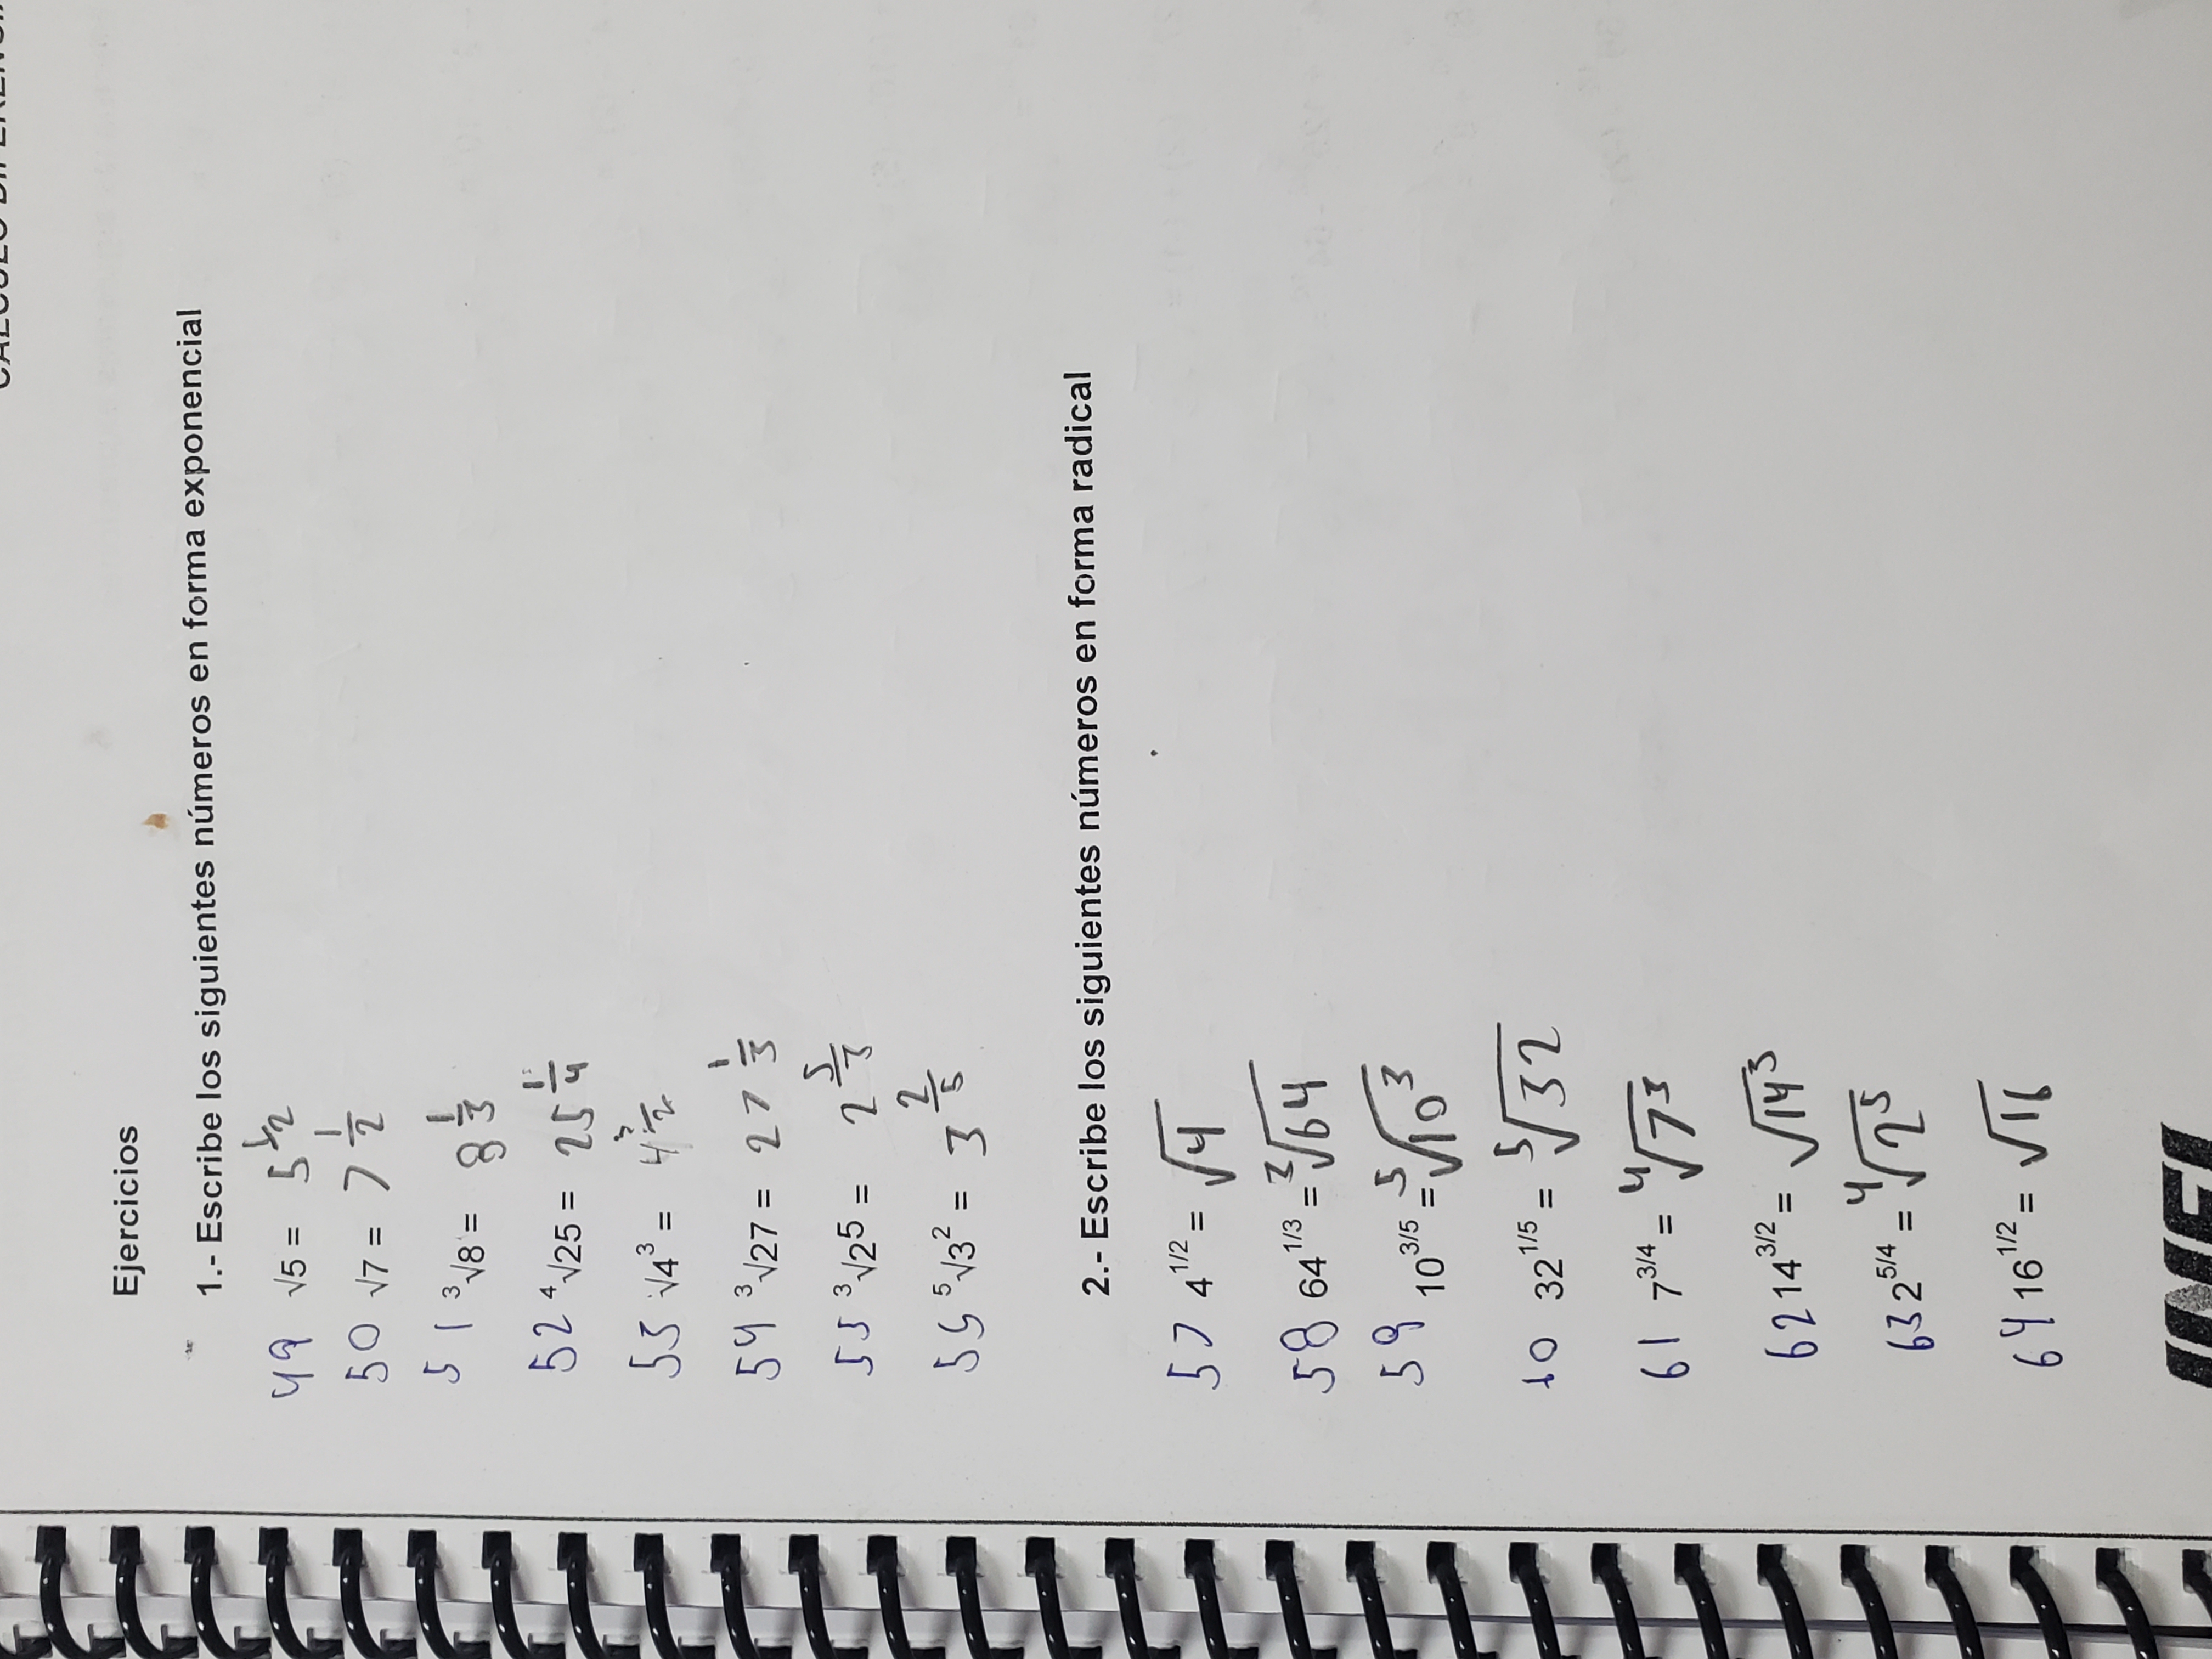 Ejercicios
1.- Escribe los siguientes números en forma exponencial
49 √5 = 5^1/2
50 √7 = 7^1/2
51 ³√8 = 8^1/3
52 ⁴√25 = 25^1/4
53 √4³ = 4^3/2
54 ³√27 = 27^1/3
55 ³√2⁵ = 2^5/3
55 ⁵√3² = 3^2/5
2.- Escribe los siguientes números en forma radical
57 4^1/2 = √4
58 64^1/3 = ³√64
59 10^3/5 = ⁵√10³
60 32^1/5 = ⁵√32
61 7^3/4 = ⁴√7³
62 14^3/2 = √14³
63 2^5/4 = ⁴√2⁵
64 16^1/2 = √16